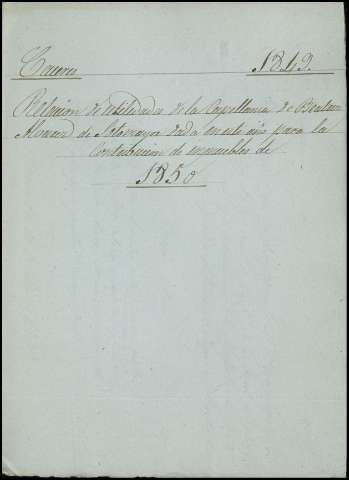 Caceres 1849.
Relacion de utilidades de la Capellania de Beatriz
Alvarez de Sotomayor dada en este año para la
Contribucion de inmuebles de
1850